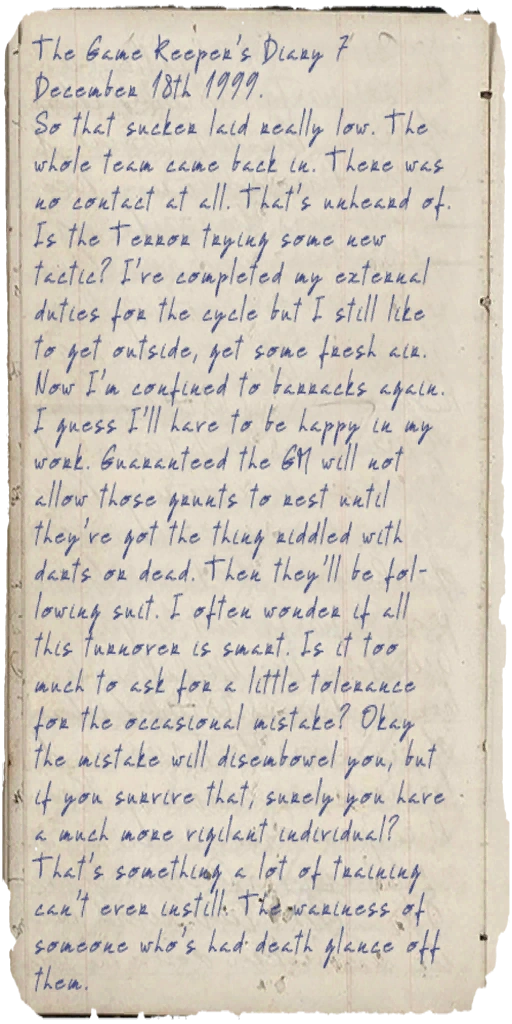 The Game Keeper's Diary 7
December 18th 1999.
So that sucker laid really low. The
whole team came back in. There was
no contact at all. That's unheard of.
Is the Terror trying some new
tactic? I've completed my external
duties for the cycle but I still like
to get outside, get some fresh air.
Now I'm confined to barracks again.
I guess I'll have to be happy in my
work. Guaranteed the GM will not
allow those grunts to rest until
they've got the thing riddled with
darts or dead. Then they'll be fol-
lowing suit. I often wonder if all
this turnover is smart. Is it too
much to ask for a little tolerance
for the occasional mistake? Okay
the mistake will disembowel you, but
if you survive that, surely you have
a much more vigilant individual?
That's something a lot of training
can't ever instill. The wariness of
someone who's had death glance off
them.